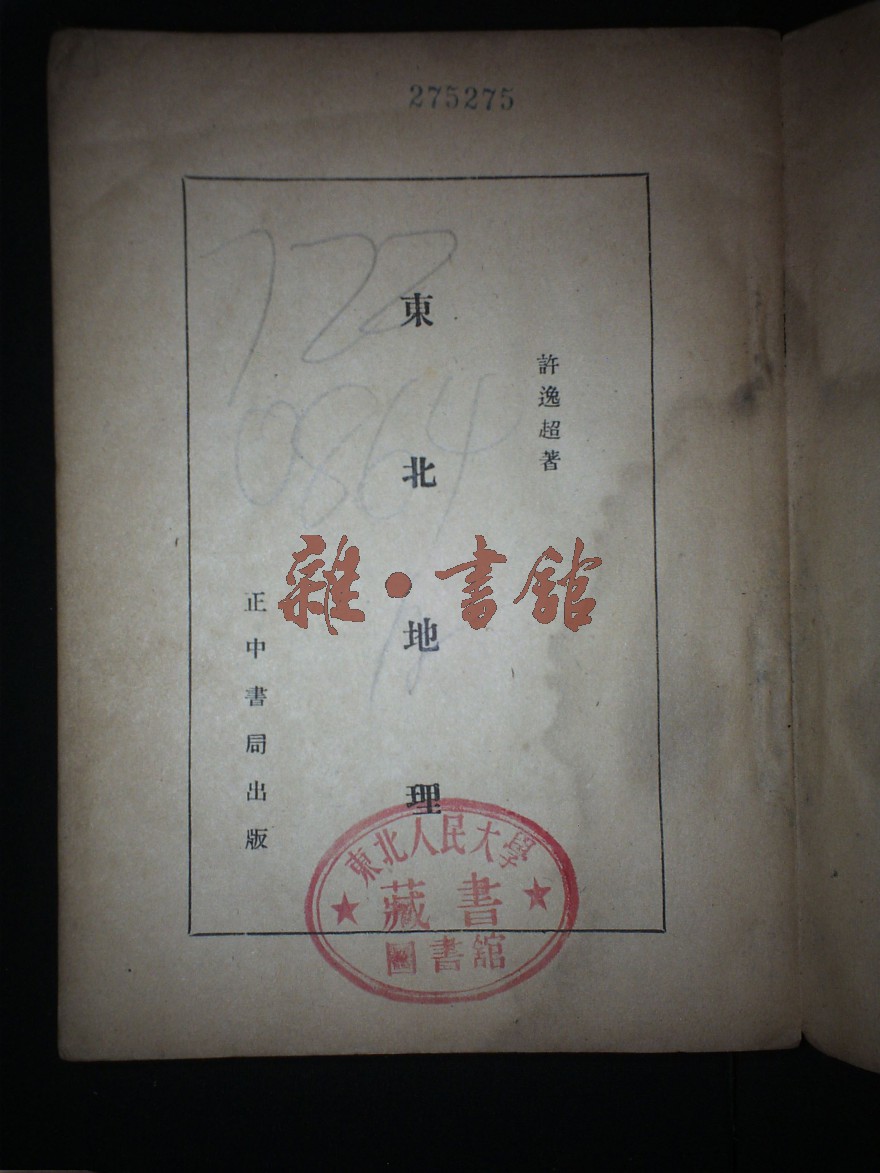 275275
722
0864
許逸超著
東北地理
正中書局出版
雜·書館
東北人民大學
藏書
圖書館